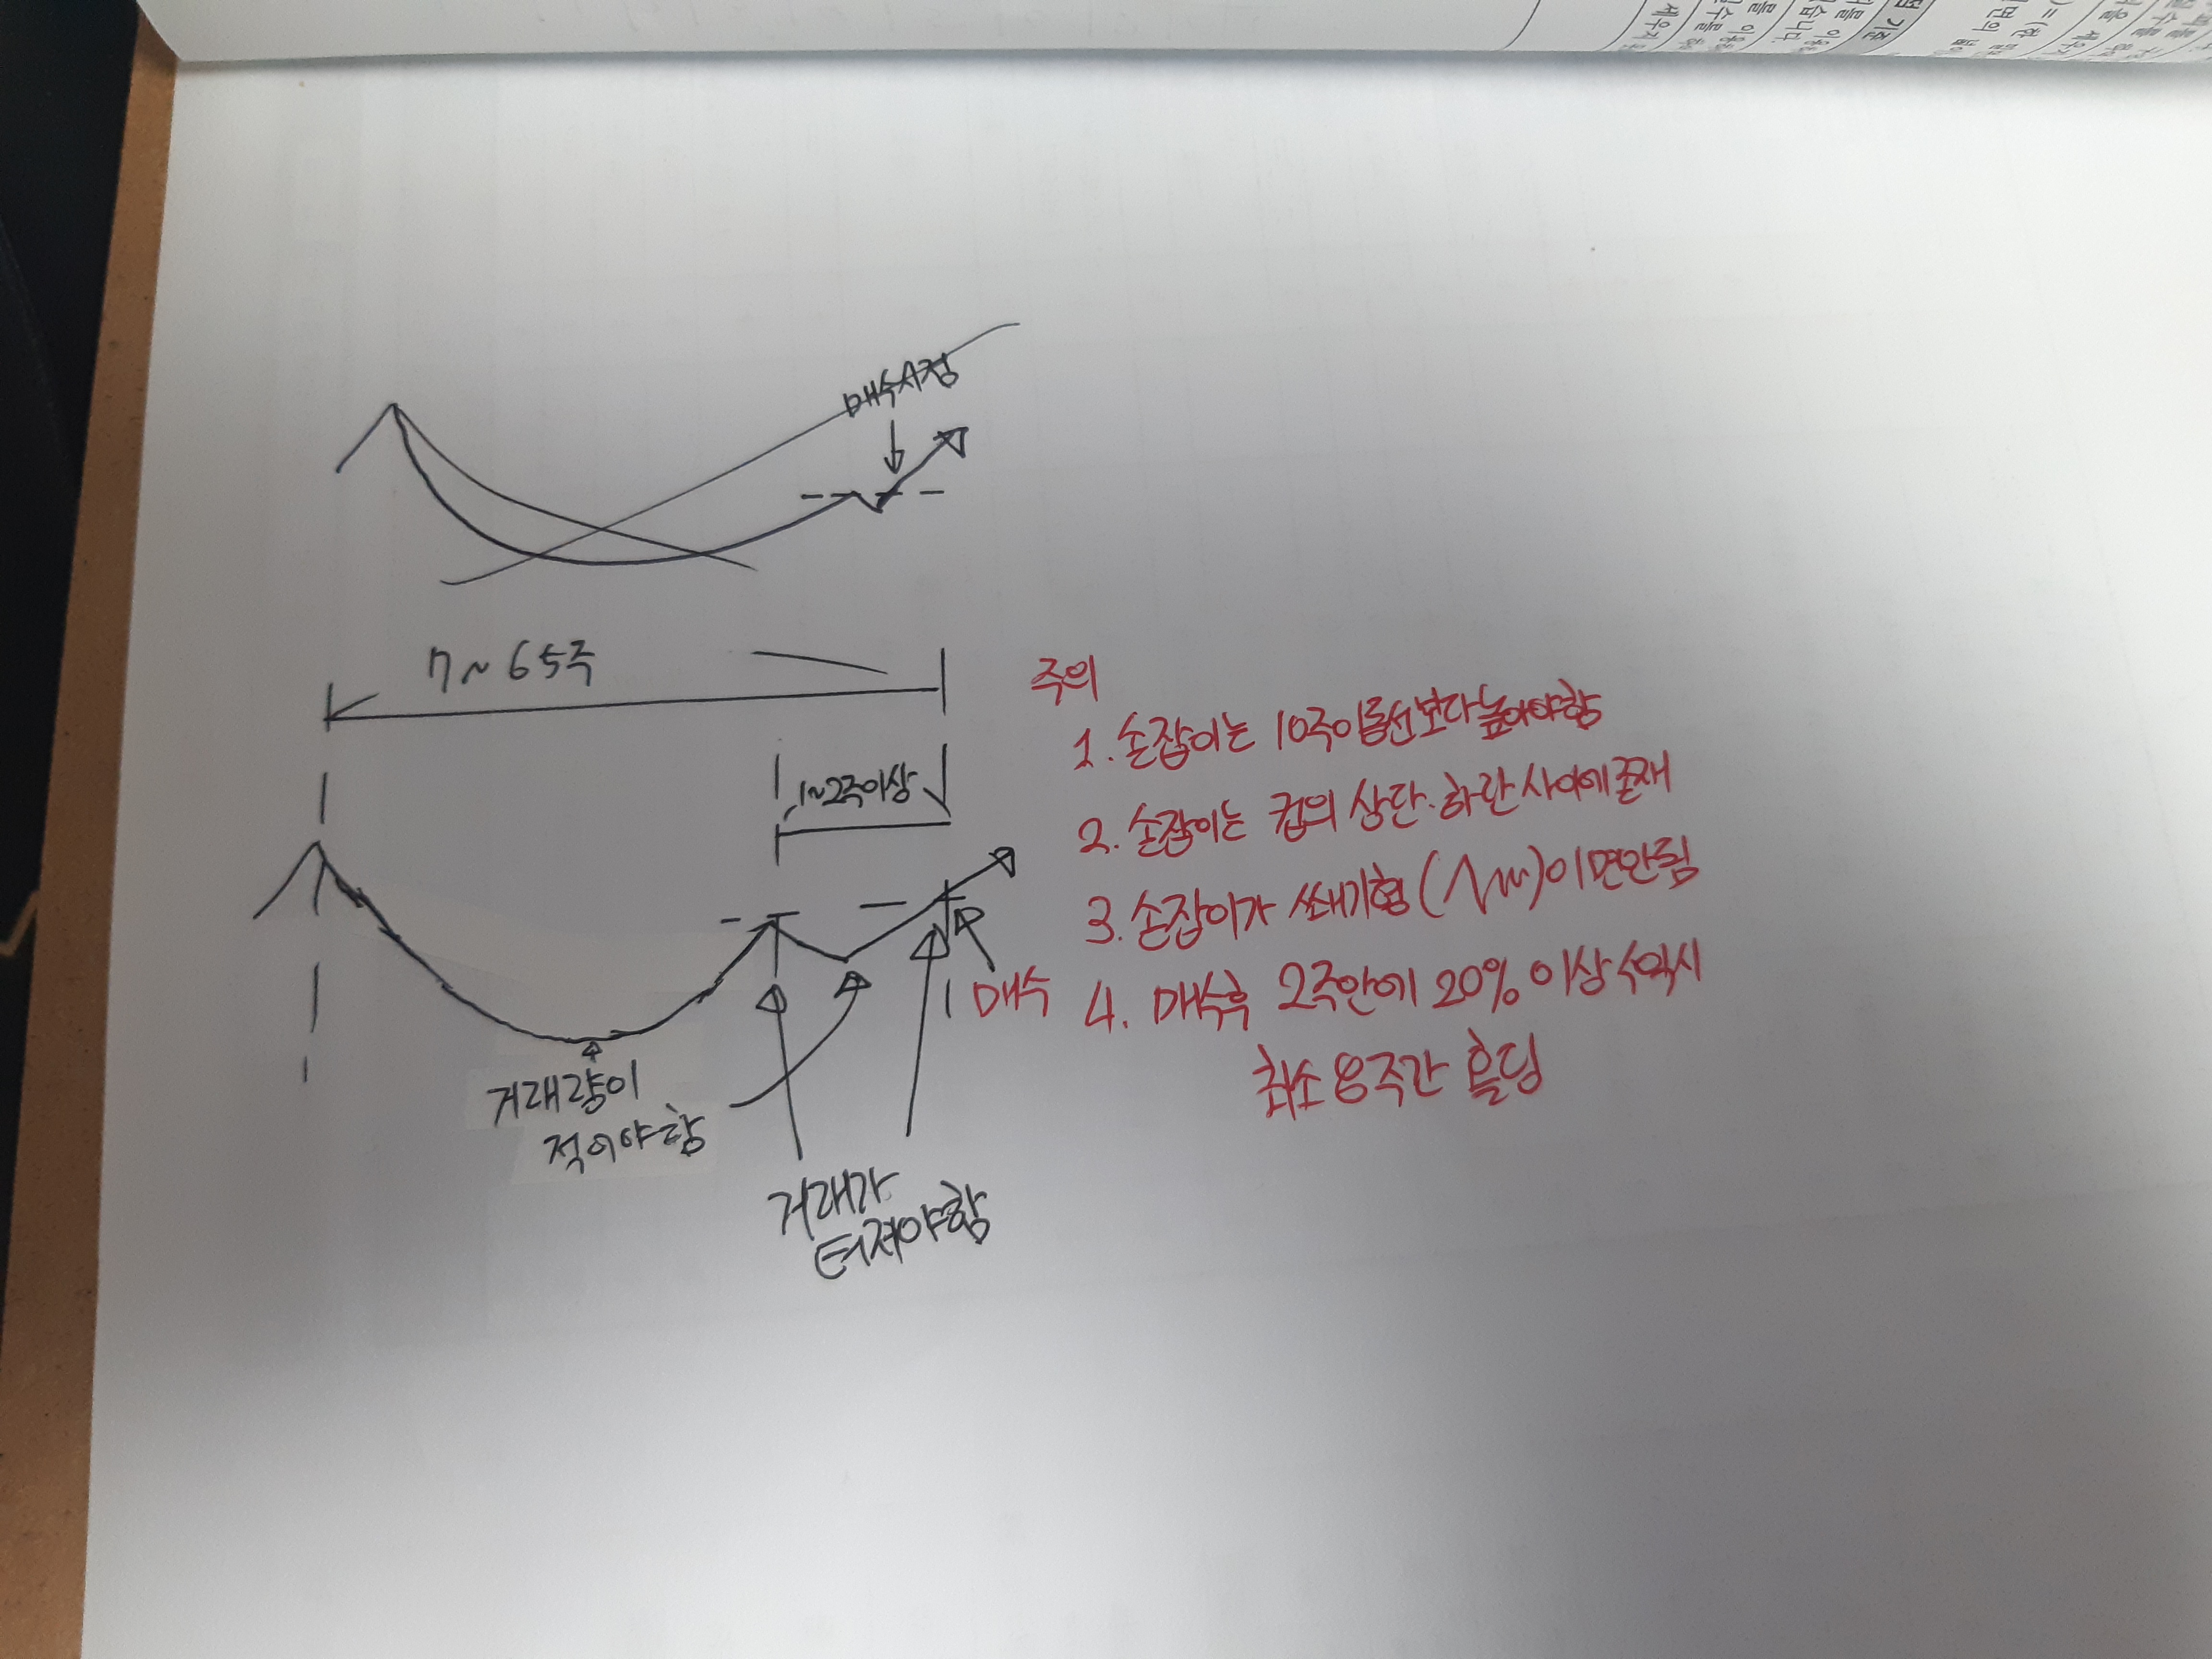 매수시점
7~65주
1~2주이상
매수
거래량이
적어야함
거래가
터져야함
주의
1. 손잡이는 10주이동선보다 높아야함
2. 손잡이는 컵의 상단·하단 사이에 존재
3. 손잡이가 쐐기형 ( )이면안됨
4. 매수후 2주안에 20% 이상 수익시
최소 8주간 홀딩